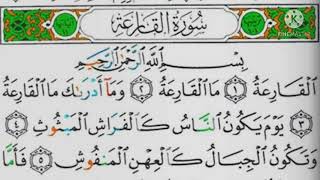 سُورَةُ الْقَارِعَةِ
بِسْمِ اللَّهِ الرَّحْمَٰنِ الرَّحِيمِ
الْقَارِعَةُ ١ مَا الْقَارِعَةُ ٢ وَمَا أَدْرَىٰكَ مَا الْقَارِعَةُ
٣ يَوْمَ يَكُونُ النَّاسُ كَالْفَرَاشِ الْمَبْثُوثِ ٤
وَتَكُونُ الْجِبَالُ كَالْعِهْنِ الْمَنفُوشِ ٥ فَأَمَّا